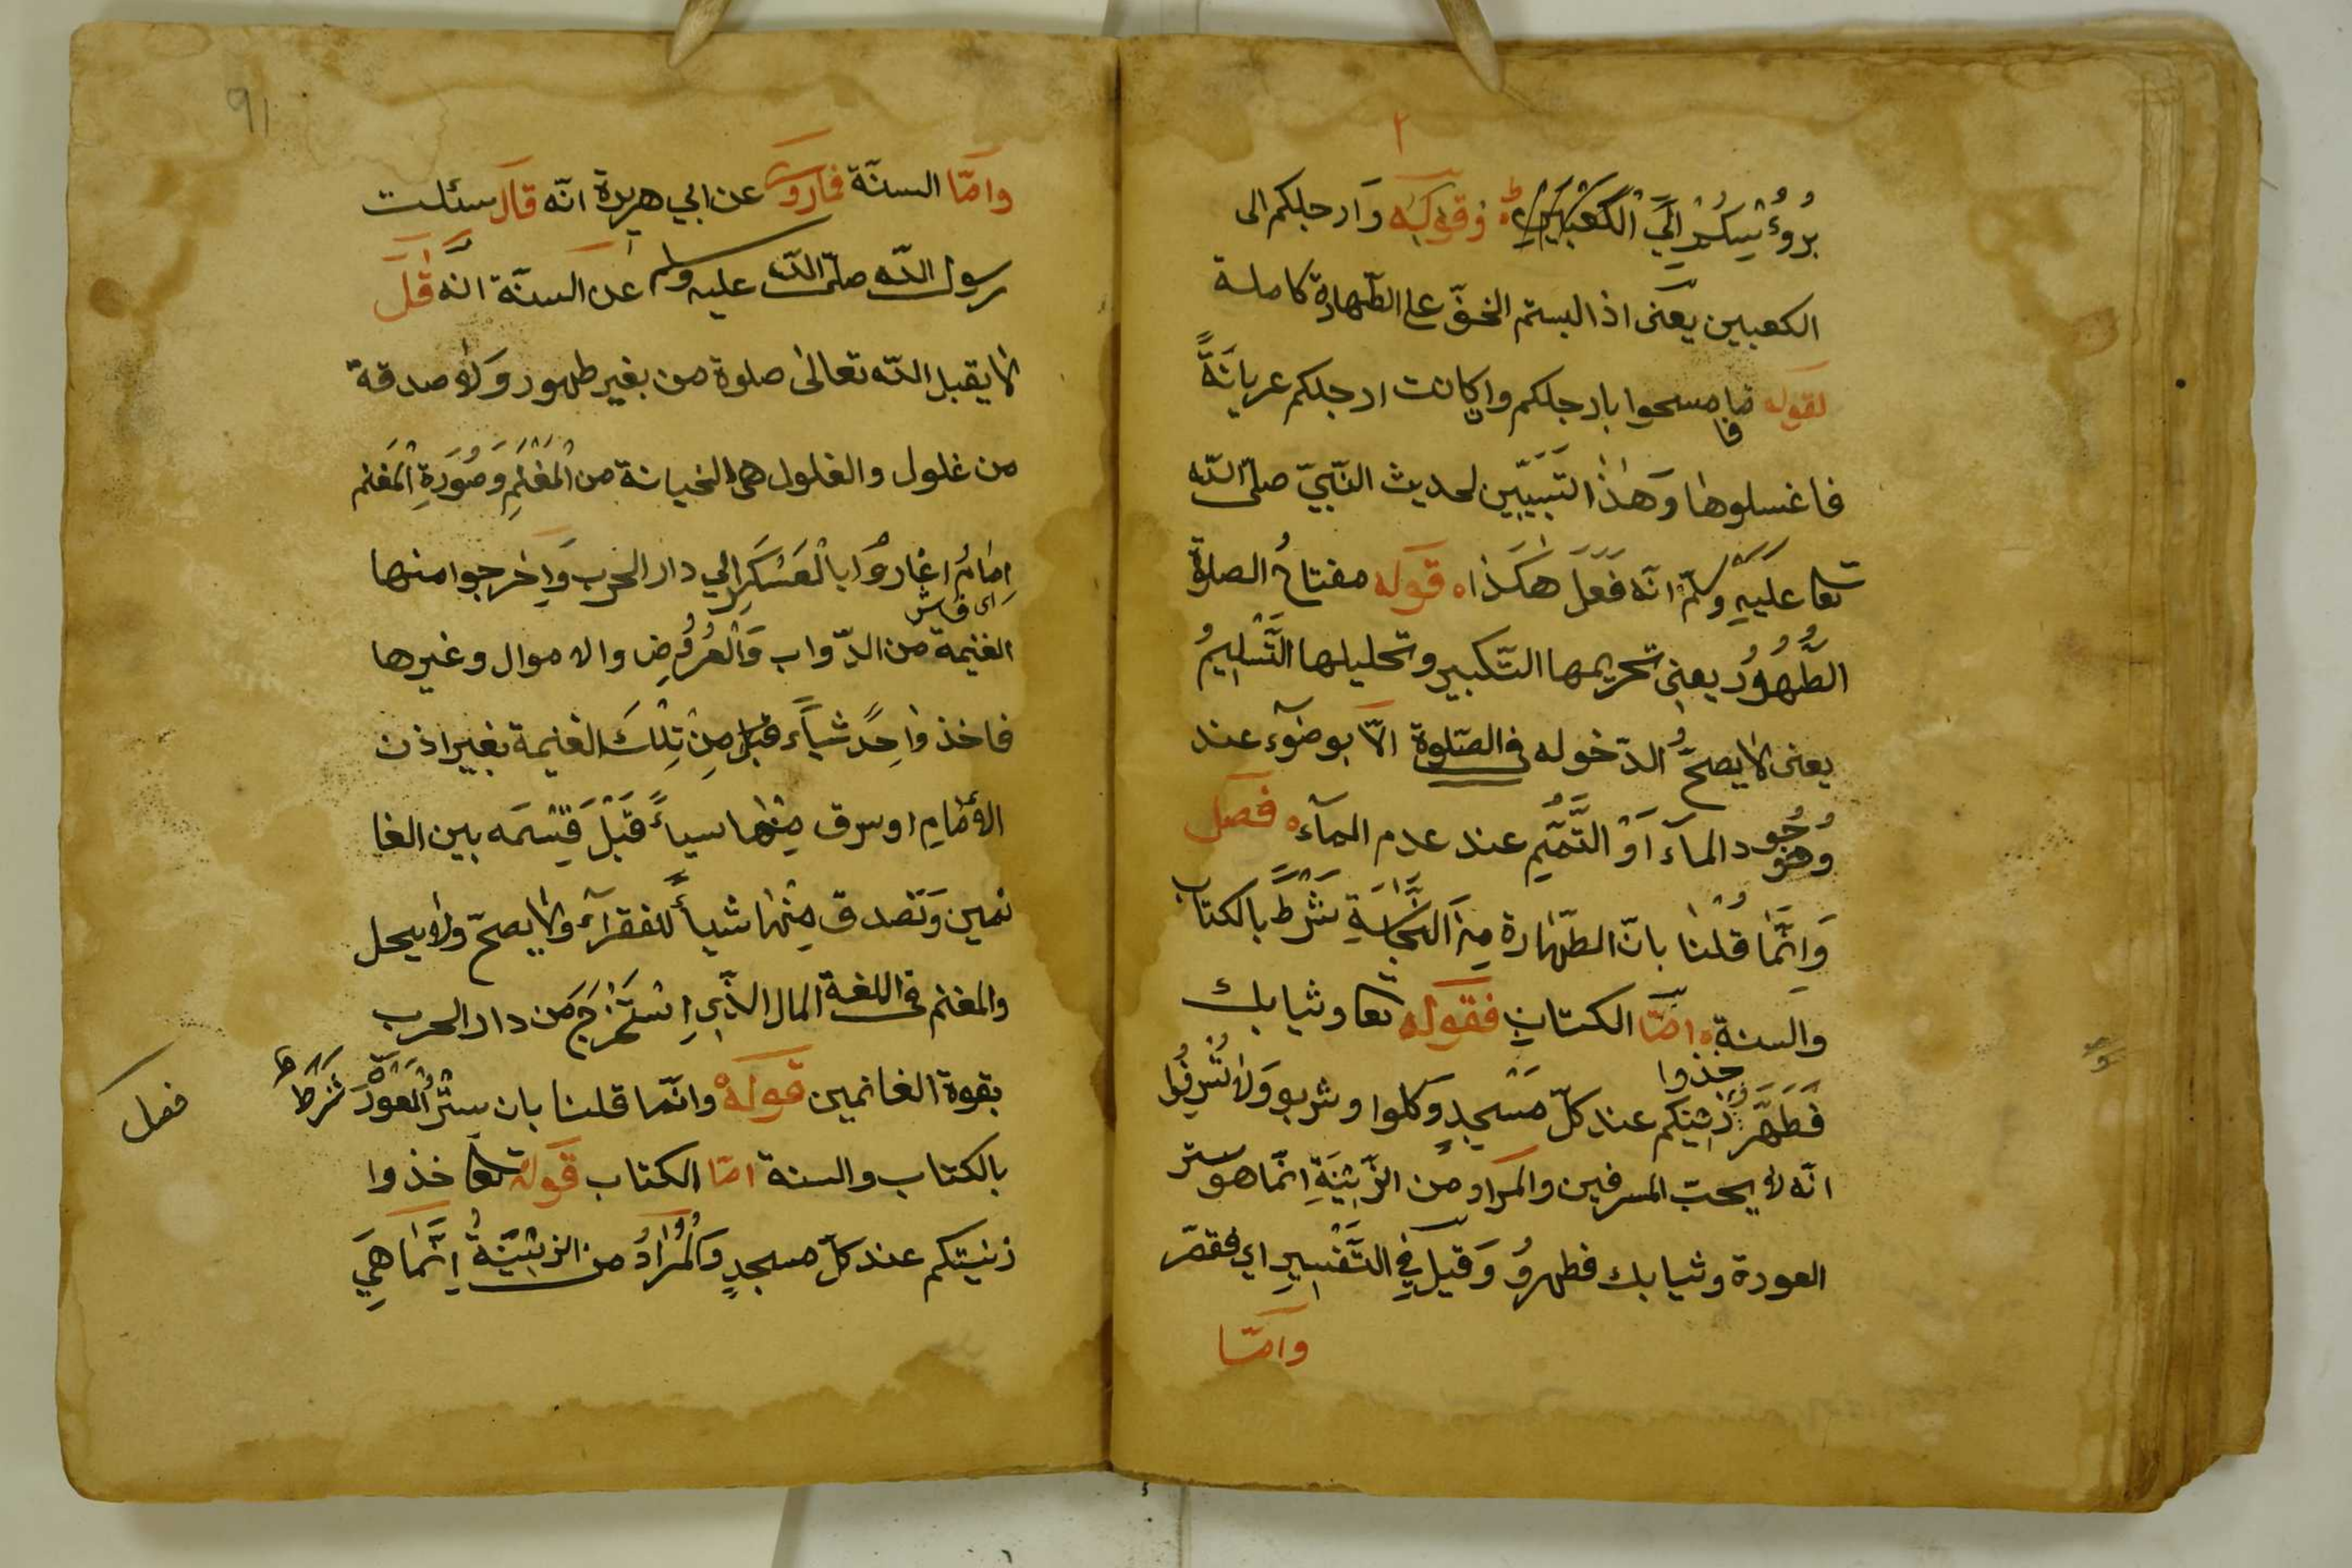 ٢
برؤسكم الي الكعبين وقوله وارجلكم الى
الكعبين يعنى اذا لبستم الخفّ على الطّهارة كاملة
لقوله فامسحوا بارجلكم وان كانت ارجلكم عريانَةً
فاغسلوها وَهٰذا التَبيين لحديث النّبيّ صلّى اللّه
تعا عَلَيْهِ وسلّم انّه فَعَلَ هٰكَذا ه قوله مفتاحُ الصلوة
الطَّهُوُرُ يعنِى تحريمها التّكبير وتحليلها التَّسْلِيمُ
يعنى لا يصحّ الدّخوله فى الصّلوة الاّ بوضوٓء عند
وُجُود المآء اَوْ التَّيَمُّم عند عدم المآء ه فصل
وَاِنَّمٰا قُلْنٰا بانّ الطّهٰارة مِنَ النَّجٰاسَةِ شَرْطٌ بالكتاب
والسنة ه امّا الكتاب فقوله تعا وثيابك
فَطَهِّرْ خذوا زينتكم عند كلّ مَسْجِدٍ وكلوا وشربو وَلا تُسْرِفُوا
انّه لا يحبّ المسرفين والمراد من الزّينَةِ انّما هو ستر
العورة وثيابك فطهرْ وَقيل فِي التَّفْسِيرِ اي فقصّر
وامّا
91
وامّا السنّة فما روى عن ابي هريرة انّه قال سئلت
رسول اللّه صلّى اللّه عليه وسلم عن السنّة انّه قٰل
لا يقبل اللّه تعالى صلوة من بغير طهور وَلا صدقة
من غلول والغلول هى الخيانة من الْمَغْنَمِ وَصُورَةِ الْمَغنم
اِمٰامٌ اغارُوْا بالْعَسْكَرِ الي دار الحرب وَاخرجوا منها
اى قماش
الغنيمة من الدّواب وَالْعُرُوُضِ والاموال وغيرها
فاخذ واحِدٌ شيأً قبل مِنْ تِلْكَ الغنيمة بغير اذن
الأمٰامِ او سرق مِنْها سيأً قَبْلَ قِسْمَه بين الغا
نمين وَتَصدق مِنْهٰا شيأً للفقرآء ولا يصحّ ولا يحل
والمغنم فى اللغة المال الذّي اِسْتَخْرَجَ مَن دار الحرب
بقوة الغانمين قولهْ وانّما قلنا بان سَتْرُ الْعَوْرَةَ شَرَطٌ
فصل
بالكتاب والسنة امّا الكتاب قوله تعا خذوا
زينتكم عند كلّ مسجدٍ وَالْمُرٰادُ من الزّينَةُ اِنَّمٰا هَيِ